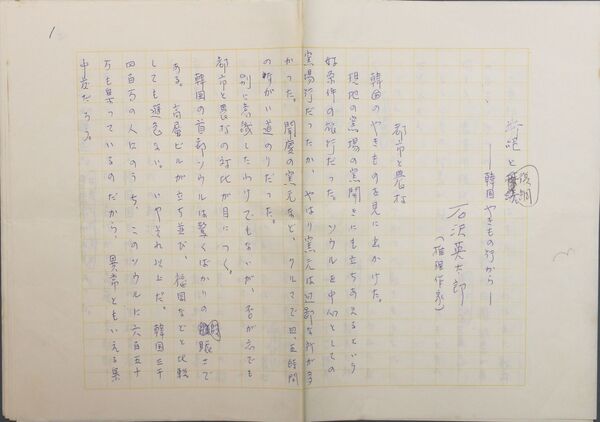 1
断絶と
――韓国やきもの行から――
石沢英太郎
（推理作家）
都市と農村
韓国のやきものを見に出かけた。
現地の窯場の窯開きにも立ちあえるという
好条件の旅行だった。ソウルを中心としての
窯場行だったが、やはり窯元は辺鄙な所が多
かった。聞慶の窯元など、クルマで四、五時間
の ながい道のりだった。
別に意識したわけでもないが、否が応でも
都市と農村の対比が目につく。
韓国の首都ソウルは驚くばかりの賑さで
ある。高層ビルが立ち並び、福岡などと比較
しても遜色ない。いやそれ以上だ。韓国三千
四百万の人口のうち、このソウルに六百五十
万も集っているのだから、異常ともいえる集
中度だろう。